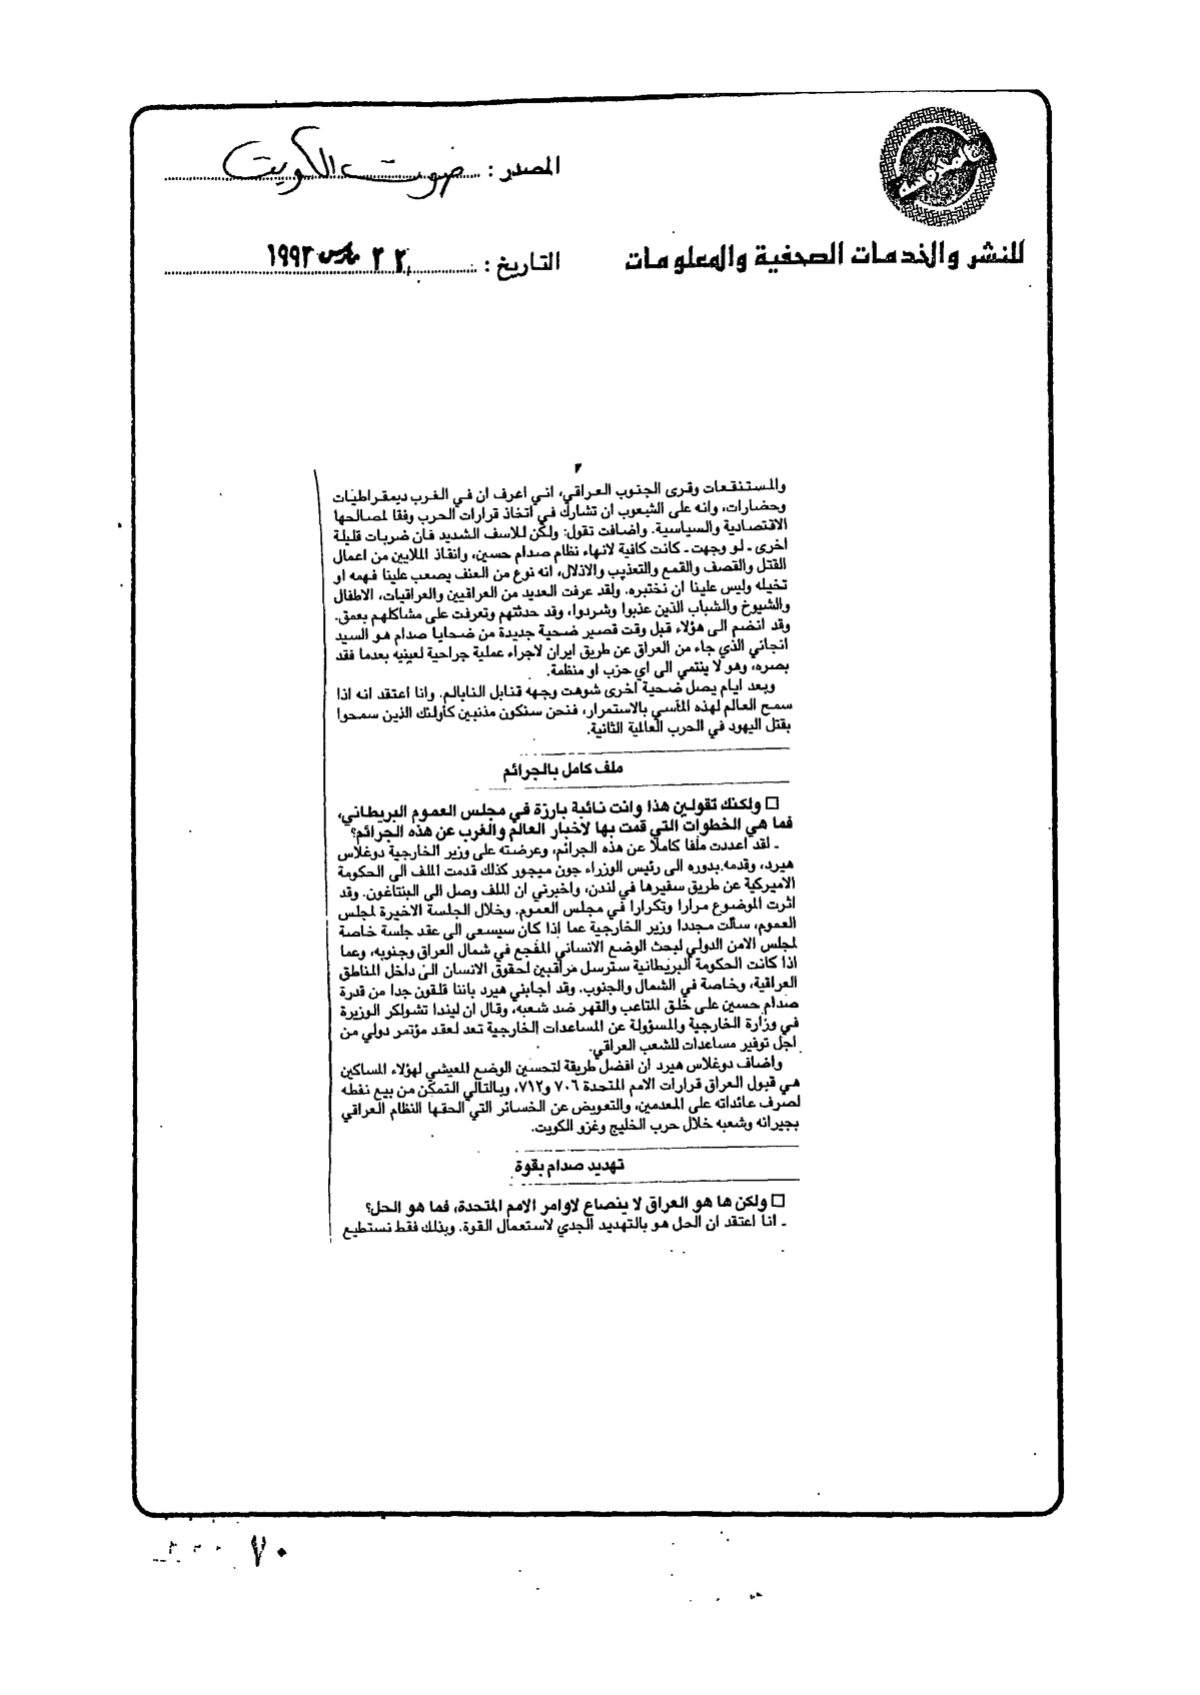 المصدر : صوت الكويت
للنشر والخدمات الصحفية والمعلومات
التاريخ : ٢٢ مارس ١٩٩٢
والمستنقعات وقرى الجنوب العراقي، انني اعرف ان في الغرب ديمقراطيات
وحضارات، وانه على الشعوب ان تشارك في اتخاذ قرارات الحرب وفقا لمصالحها
الاقتصادية والسياسية. واضافت تقول: ولكن للاسف الشديد فان ضربات قليلة
اخرى ـ لو وجهت ـ كانت كافية لانهاء نظام صدام حسين، وانقاذ الملايين من اعمال
القتل والقصف والقمع والتعذيب والاذلال، انه نوع من العنف يصعب علينا فهمه او
تخيله وليس علينا ان نختبره. ولقد عرفت العديد من العراقيين والعراقيات، الاطفال
والشيوخ والشباب الذين عذبوا وشردوا، وقد حدثتهم وتعرفت على مشاكلهم بعمق.
وقد انضم الى هؤلاء قبل وقت قصير ضحية جديدة من ضحايا صدام هو السيد
انجاني الذي جاء من العراق عن طريق ايران لاجراء عملية جراحية لعينيه بعدما فقد
بصره، وهو لا ينتمي الى اي حزب او منظمة.
وبعد ايام يصل ضحية اخرى شوهت وجهه قنابل النابالم. وانا اعتقد انه اذا
سمح العالم لهذه المآسي بالاستمرار، فنحن سنكون مذنبين كأولئك الذين سمحوا
بقتل اليهود في الحرب العالمية الثانية.
ملف كامل بالجرائم
□ ولكنك تقولين هذا وانت نائبة بارزة في مجلس العموم البريطاني،
فما هي الخطوات التي قمت بها لاخبار العالم والغرب عن هذه الجرائم؟
ـ لقد اعددت ملفا كاملا عن هذه الجرائم، وعرضته على وزير الخارجية دوغلاس
هيرد، وقدمه بدوره الى رئيس الوزراء جون ميجور كذلك قدمت الملف الى الحكومة
الاميركية عن طريق سفيرها في لندن، واخبرني ان الملف وصل الى البنتاغون. وقد
اثرت الموضوع مرارا وتكرارا في مجلس العموم. وخلال الجلسة الاخيرة لمجلس
العموم، سألت مجددا وزير الخارجية عما إذا كان سيسعى الى عقد جلسة خاصة
لمجلس الامن الدولي لبحث الوضع الانساني المفجع في شمال العراق وجنوبه، وعما
اذا كانت الحكومة البريطانية سترسل مراقبين لحقوق الانسان الى داخل المناطق
العراقية، وخاصة في الشمال والجنوب. وقد اجابني هيرد باننا قلقون جدا من قدرة
صدام حسين على خلق المتاعب والقهر ضد شعبه، وقال ان ليندا تشولكر الوزيرة
في وزارة الخارجية والمسؤولة عن المساعدات الخارجية تعد لعقد مؤتمر دولي من
اجل توفير مساعدات للشعب العراقي.
واضاف دوغلاس هيرد ان افضل طريقة لتحسين الوضع المعيشي لهؤلاء المساكين
هي قبول العراق قرارات الامم المتحدة ٧٠٦ و٧١٢، وبالتالي التمكن من بيع نفطه
لصرف عائداته على المعدمين، والتعويض عن الخسائر التي الحقها النظام العراقي
بجيرانه وشعبه خلال حرب الخليج وغزو الكويت.
تهديد صدام بقوة
□ ولكن ها هو العراق لا ينصاع لاوامر الامم المتحدة، فما هو الحل؟
ـ انا اعتقد ان الحل هو بالتهديد الجدي لاستعمال القوة. وبذلك فقط نستطيع
٧٠